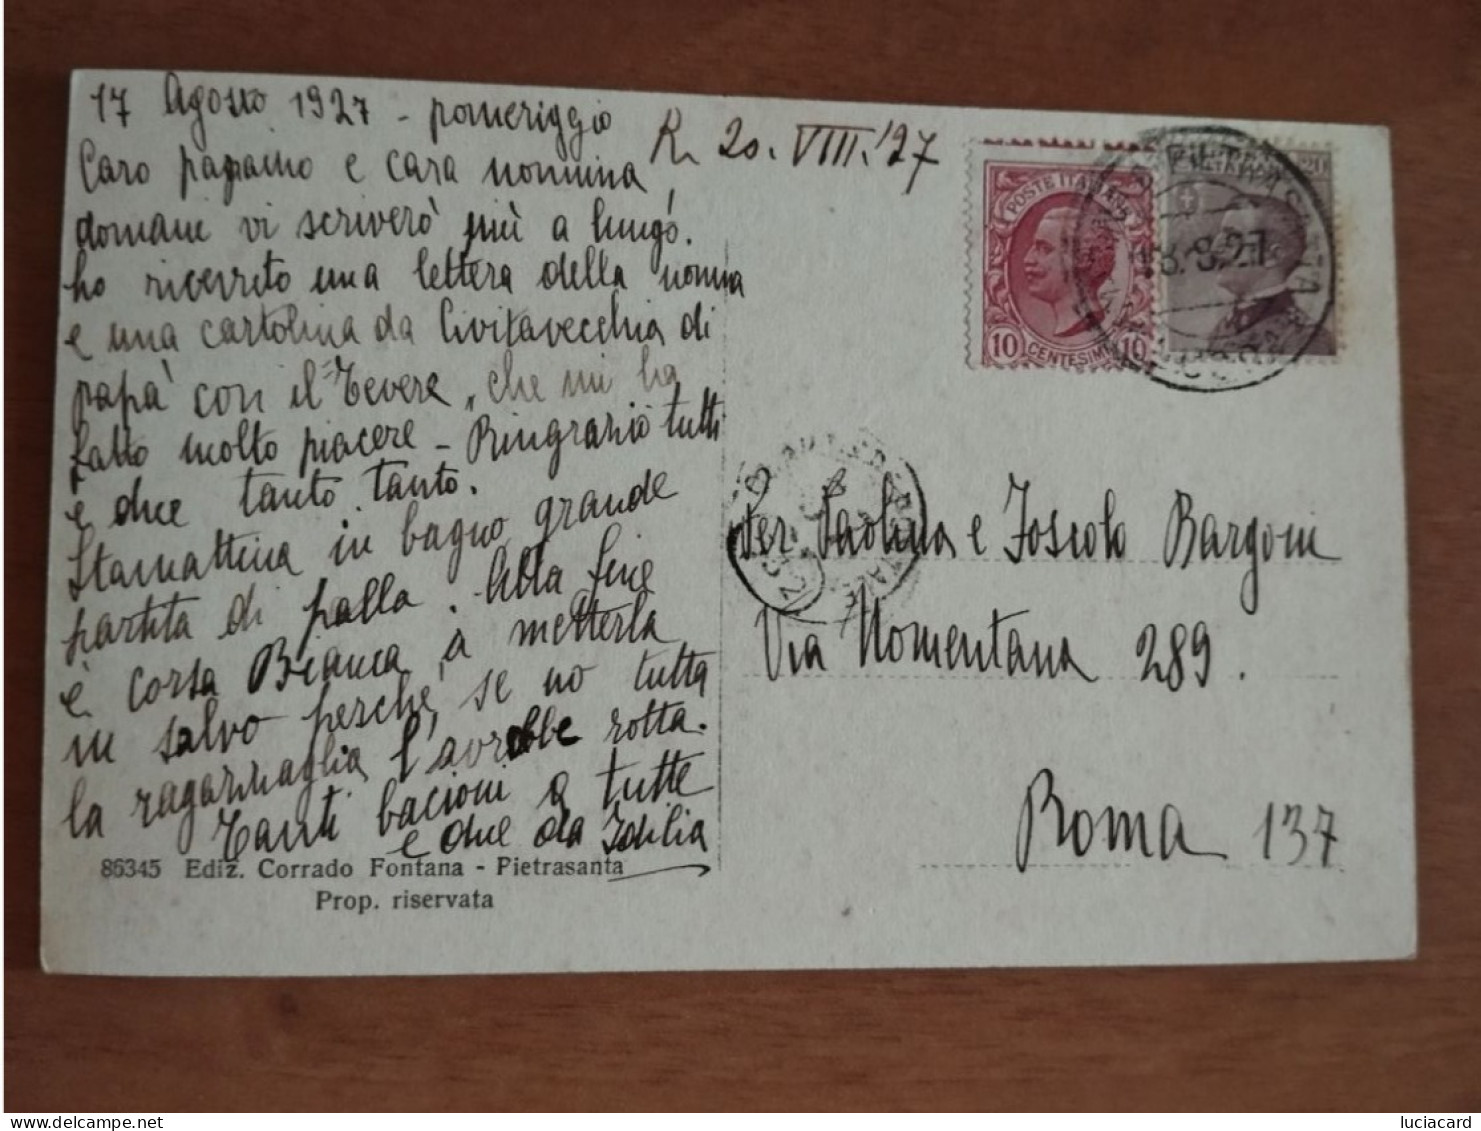 17 Agosto 1927 - pomeriggio
Caro papaino e cara nonnina
domani vi scriverò più a lungo.
ho ricevuto una lettera della nonna
e una cartolina da Civitavecchia di
papà con il "Tevere" che mi ha
fatto molto piacere - Ringrazio tutti
e due tanto tanto.
Stamattina in bagno grande
partita di palla. Alla fine
è corsa Bianca a metterla
in salvo perché, se no tutta
la ragazzaglia l'avrebbe rotta.
Tanti bacioni a tutte
e due da Idilia
86345 Ediz. Corrado Fontana - Pietrasanta
Prop. riservata
R. 20. VIII. '27
POSTE ITALIANE
10 CENTESIMI 10
20
PIETRASANTA
18.8.27
LUCCA
Per Paolina e Foscolo Bargoni
Via Nomentana 289.
Roma 137
delcampe.net
luciacard